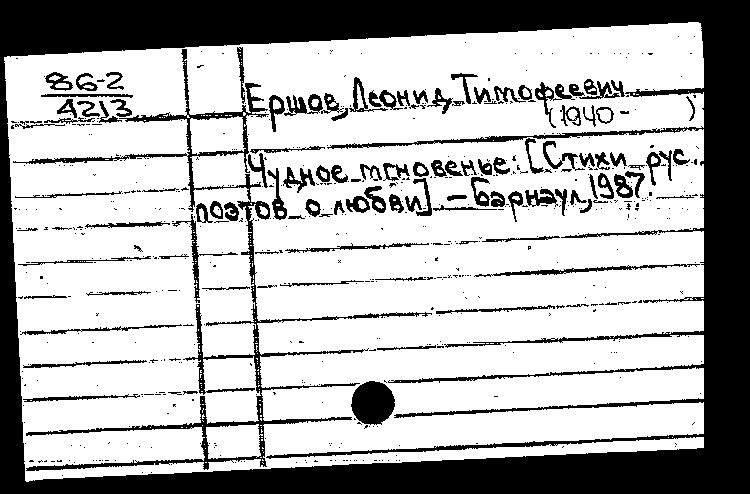 86-2
4213
Ершов, Леонид Тимофеевич
(1940- )
Чудное мгновенье: [Стихи рус.
поэтов о любви]. - Барнаул, 1987.